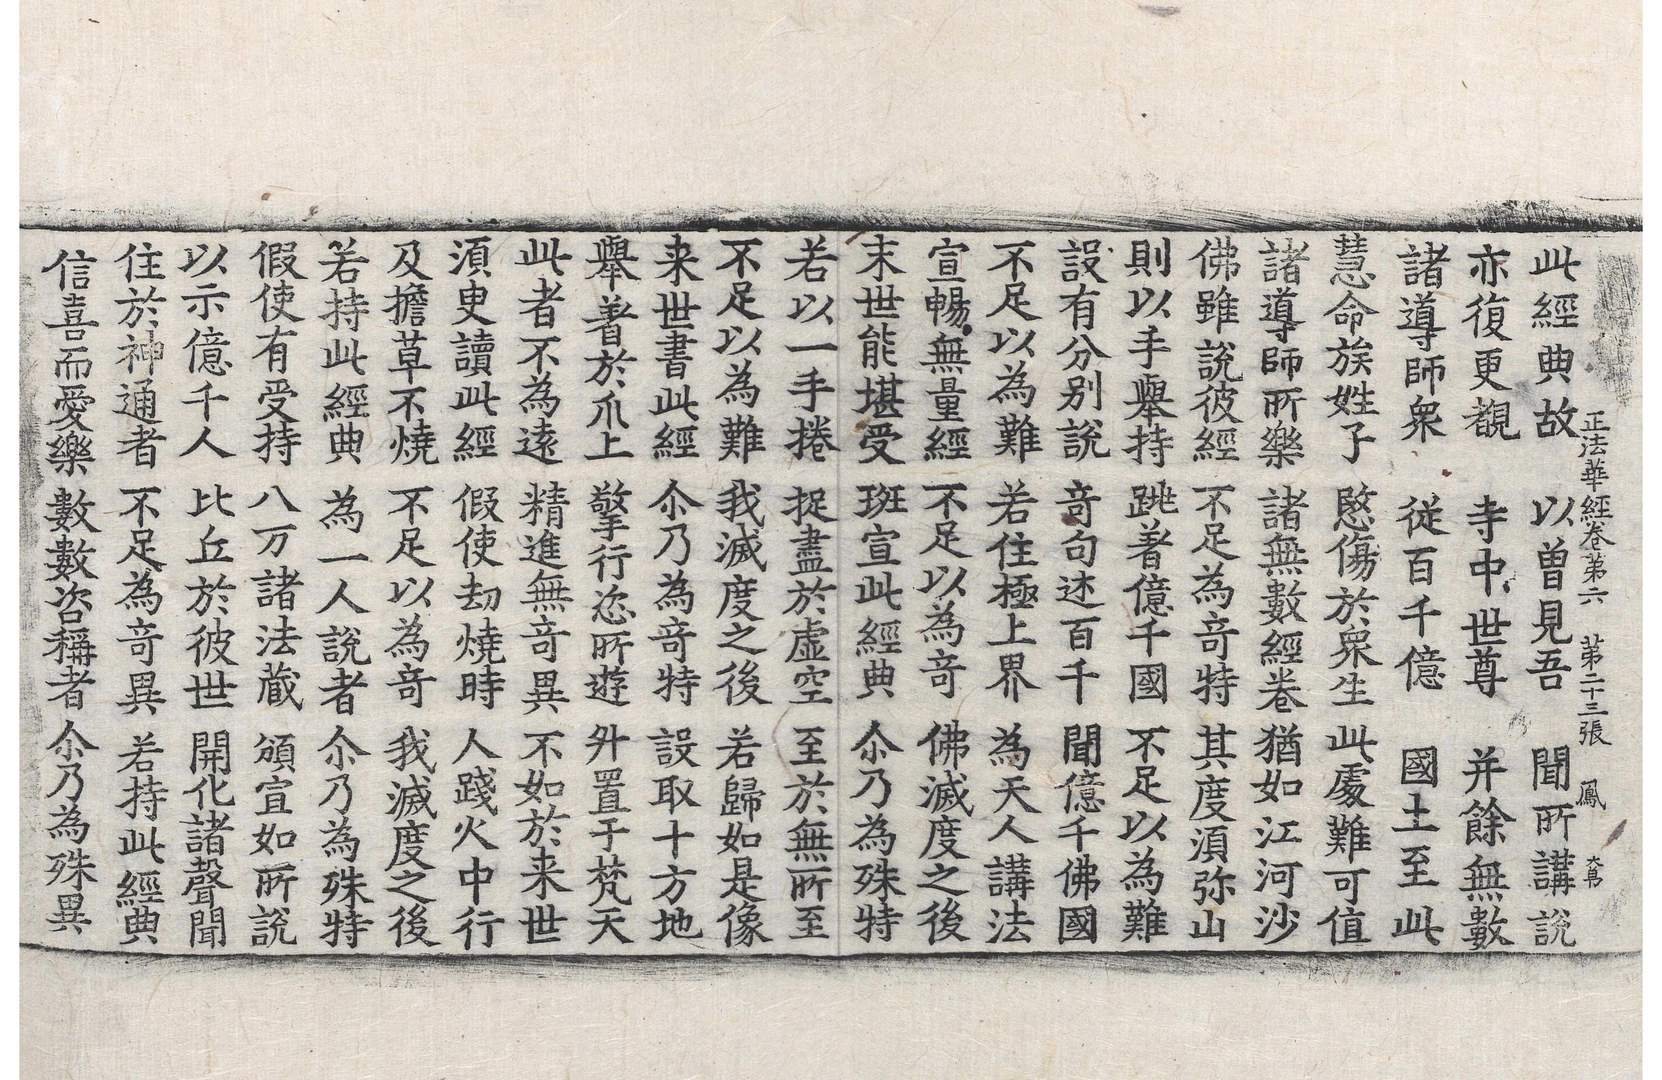 正法華經卷第六 第二十三張 鳳
此經典故 以曾見吾 聞所講說
亦復更覩 寺中世尊 并餘無數
諸導師衆 從百千億 國土至此
慧命族姓子 愍傷於衆生 此處難可值
諸導師所樂 諸無數經卷 猶如江河沙
佛雖說彼經 不足為奇特 其度須弥山
則以手舉持 跳著億千國 不足以為難
設有分別說 奇句述百千 聞億千佛國
不足以為難 若住極上界 為天人講法
宣暢無量經 不足以為奇 佛滅度之後
末世能堪受 班宣此經典 尒乃為殊特
若以一手捲 捉盡於虛空 至於無所至
不足以為難 我滅度之後 若歸如是像
来世書此經 尒乃為奇特 設取十方地
舉著於爪上 擎行恣所遊 外置于梵天
此者不為遠 精進無奇異 不如於来世
須臾讀此經 假使劫燒時 人踐火中行
及擔草不燒 不足以為奇 我滅度之後
若持此經典 為一人說者 尒乃為殊特
假使有受持 八万諸法藏 頒宣如所說
以示億千人 比丘於彼世 開化諸聲聞
住於神通者 不足為奇異 若持此經典
信喜而愛樂 數數咨稱者 尒乃為殊異